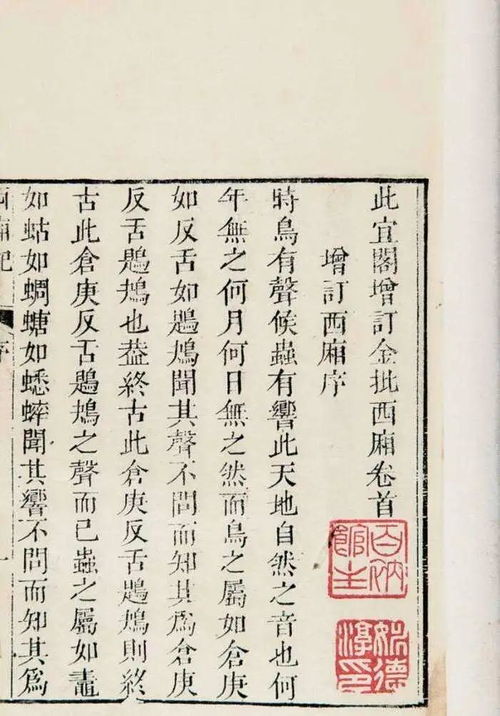 此宜閣增訂金批西廂卷首
增訂西廂序
時鳥有聲候蟲有響此天地自然之音也何
年無之何月何日無之然而鳥之屬如倉庚
如反舌如鶗鴂聞其聲不問而知其爲倉庚
反舌鶗鴂也葢終古此倉庚反舌鶗鴂則終
古此倉庚反舌鶗鴂之聲而已蟲之屬如鼃
如蛄如蜩螗如蟋蟀聞其響不問而知其爲
西廂記 序 一
百衲館主